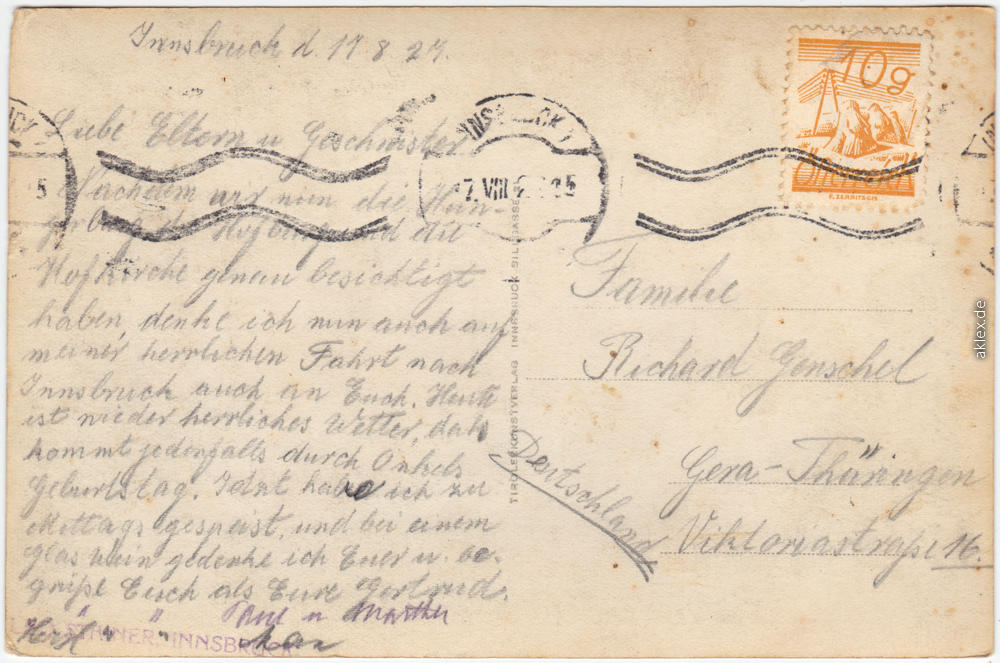 Innsbruck d. 17.8.27.
Liebe Eltern u Geschwister.
Nachdem wir nun die
Hofburg und die
Hofkirche genau besichtigt
haben, denke ich nun auch auf
meiner herrlichen Fahrt nach
Innsbruck auch an Euch. Heute
ist wieder herrliches Wetter, daß
kommt jedenfalls durch Onkels
Geburtstag. Jetzt habe ich zu
Mittags gespeist, und bei einem
Glas Wein gedenke ich Euer u. be-
grüße Euch als Eure Gertrud.
" " Paul u Martha
Herzl " "
STEINER, INNSBRUCK
INNSBRUCK 1
17. VIII
10g
ÖSTERREICH
TIROLER KUNSTVERLAG INNSBRUCK SILLGASSE
Familie
Richard Genschel
Gera-Thüringen
Viktoriastraße 16.
Deutschland
aklex.de